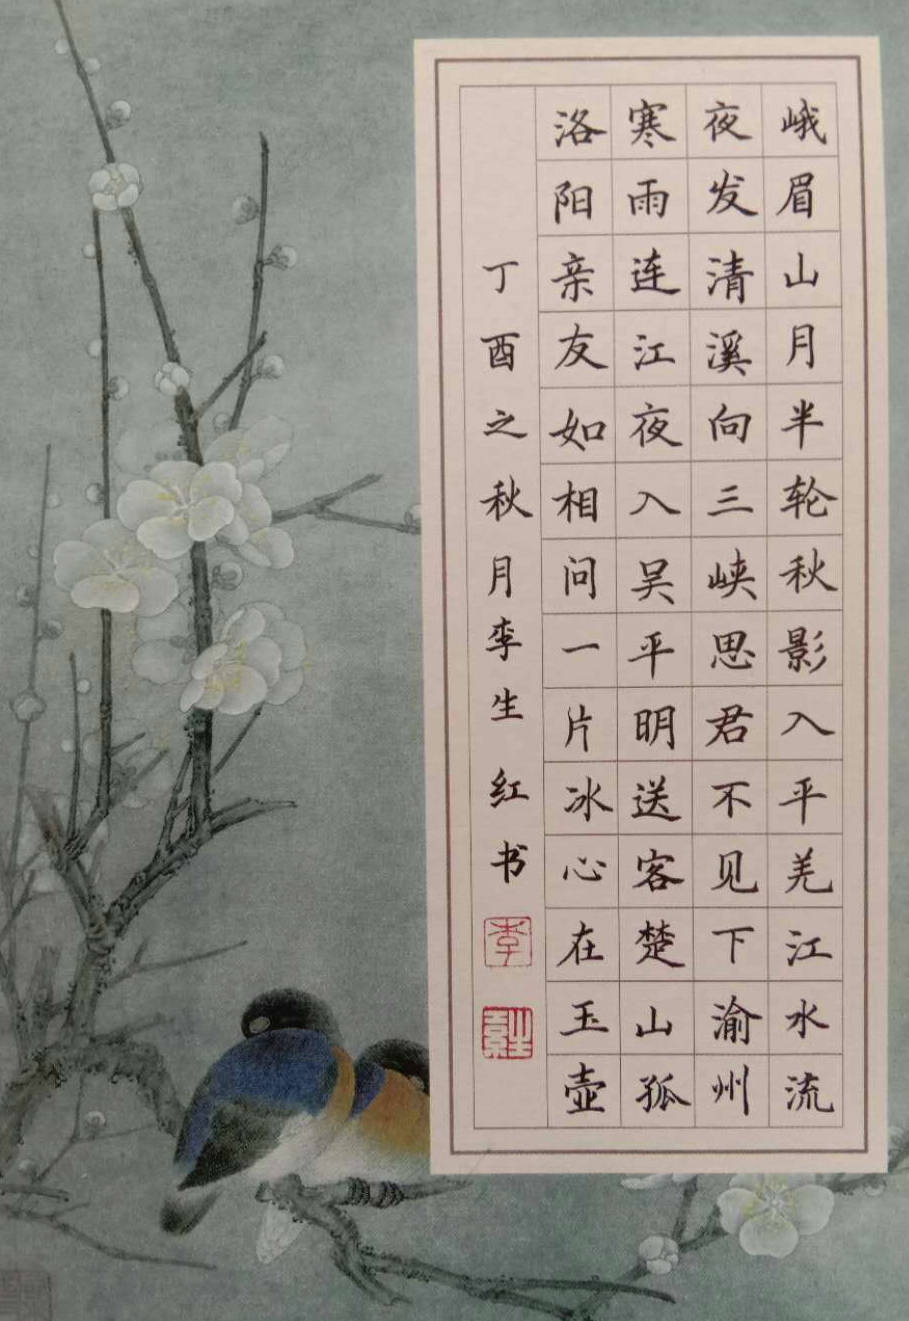 峨眉山月半轮秋影入平羌江水流
夜发清溪向三峡思君不见下渝州
寒雨连江夜入吴平明送客楚山孤
洛阳亲友如相问一片冰心在玉壶
丁酉之秋月李生红书
李